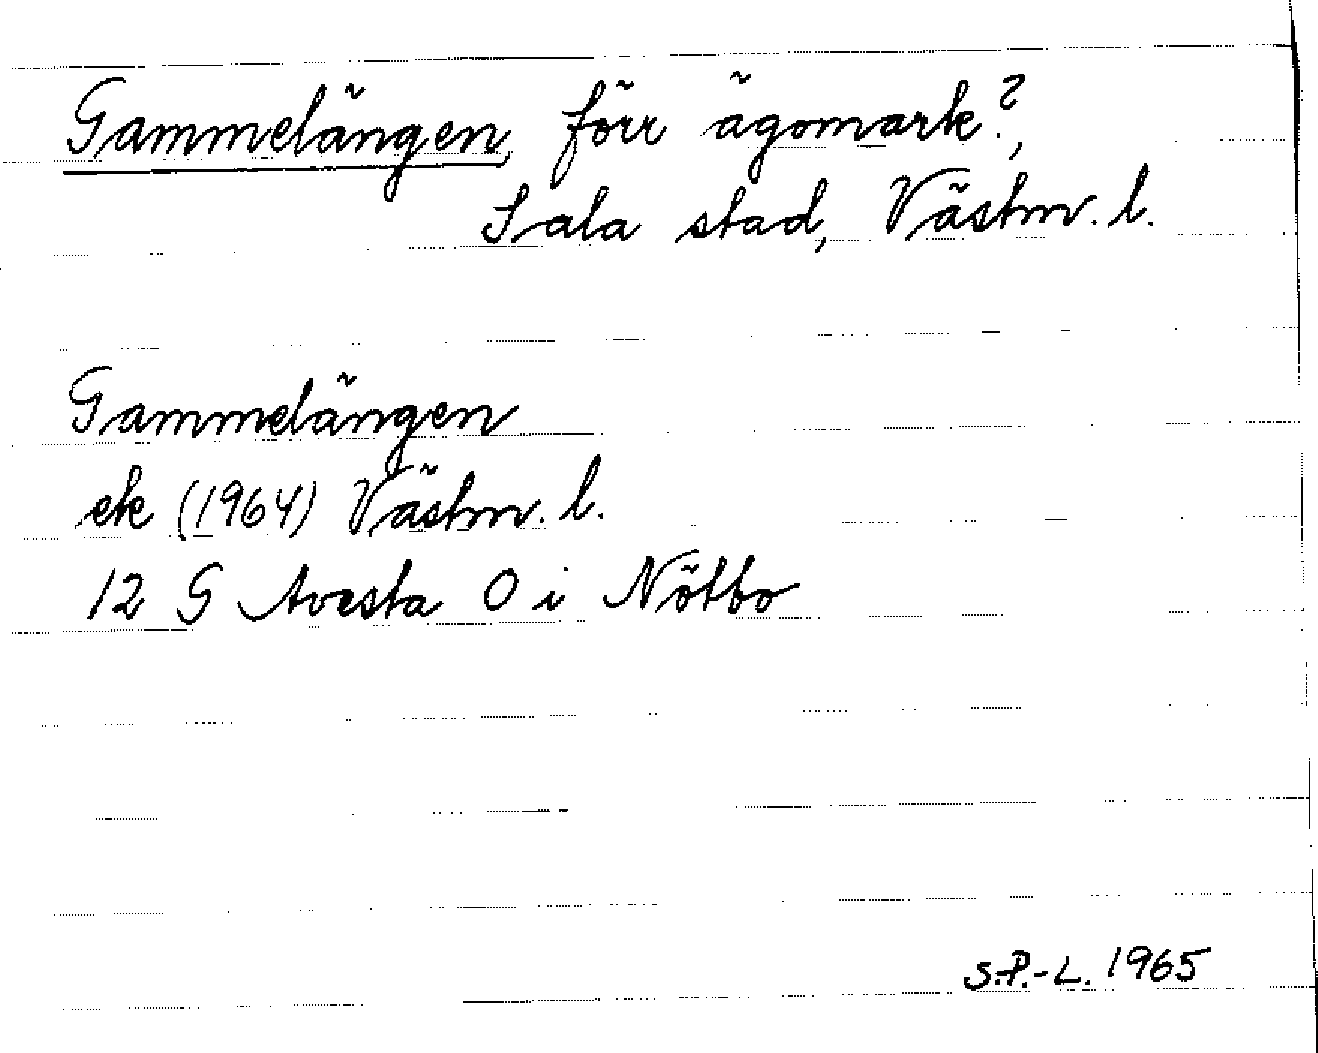 Gammelängen, förr ägomark?,
Sala stad, Västm. l.
Gammelängen
ek (1964) Västm. l.
12 G Avesta O i Nötbo
S.P.-L. 1965